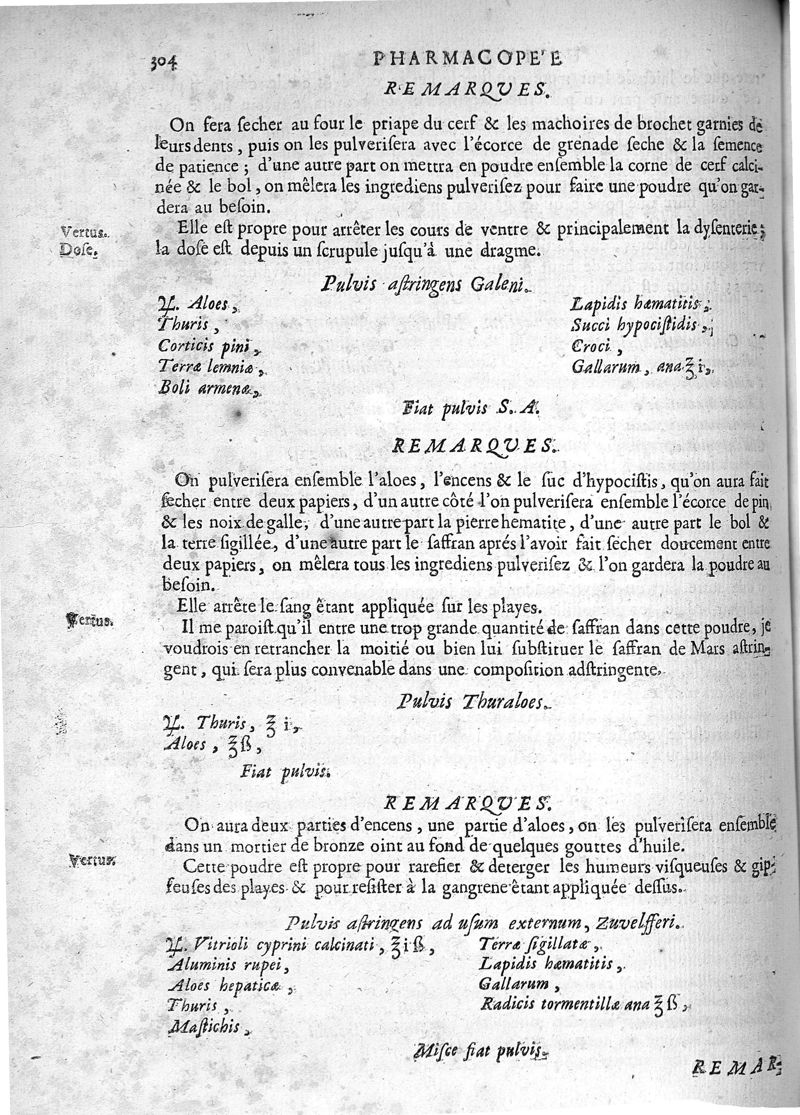 304 PHARMACOPE'E
REMARQUES.
On fera ſecher au four le priape du cerf & les machoires de brochet garnies de
leurs dents, puis on les pulveriſera avec l'écorce de grenade ſeche & la ſemence
de patience ; d'une autre part on mettra en poudre enſemble la corne de cerf calci-
née & le bol, on mêlera les ingrediens pulveriſez pour faire une poudre qu'on gar-
dera au beſoin.
Vertus. Elle eſt propre pour arrêter les cours de ventre & principalement la dyſenterie ;
Doſe. la doſe eſt depuis un ſcrupule juſqu'à une dragme.
Pulvis aſtringens Galeni.
♃. Aloes, Lapidis hæmatitis,
Thuris, Succi hypociſtidis,
Corticis pini, Croci,
Terræ lemniæ, Gallarum, ana ℥ i,
Boli armenæ,
Fiat pulvis S. A.
REMARQUES.
On pulveriſera enſemble l'aloes, l'encens & le ſuc d'hypociſtis, qu'on aura fait
ſecher entre deux papiers, d'un autre côté l'on pulveriſera enſemble l'écorce de pin
& les noix de galle, d'une autre part la pierre hematite, d'une autre part le bol &
la terre ſigillée, d'une autre part le ſaffran aprés l'avoir fait ſecher doucement entre
deux papiers, on mêlera tous les ingrediens pulveriſez & l'on gardera la poudre au
beſoin.
Vertus. Elle arrête le ſang êtant appliquée ſur les playes.
Il me paroiſt qu'il entre une trop grande quantité de ſaffran dans cette poudre, je
voudrois en retrancher la moitié ou bien lui ſubſtituer le ſaffran de Mars aſtrin-
gent, qui ſera plus convenable dans une compoſition adſtringente.
Pulvis Thuraloes.
♃. Thuris, ℥ i,
Aloes, ℥ ß,
Fiat pulvis.
REMARQUES.
On aura deux parties d'encens, une partie d'aloes, on les pulveriſera enſemble
dans un mortier de bronze oint au fond de quelques gouttes d'huile.
Vertus. Cette poudre eſt propre pour rarefier & deterger les humeurs viſqueuſes & gip-
ſeuſes des playes & pour reſiſter à la gangrene êtant appliquée deſſus.
Pulvis aſtringens ad uſum externum, Zuvelfferi.
♃. Vitrioli cyprini calcinati, ℥ i ß, Terræ ſigillatæ,
Aluminis rupei, Lapidis hæmatitis,
Aloes hepaticæ, Gallarum,
Thuris, Radicis tormentillæ ana ℥ ß,
Maſtichis,
Miſce fiat pulvis.
REMAR-